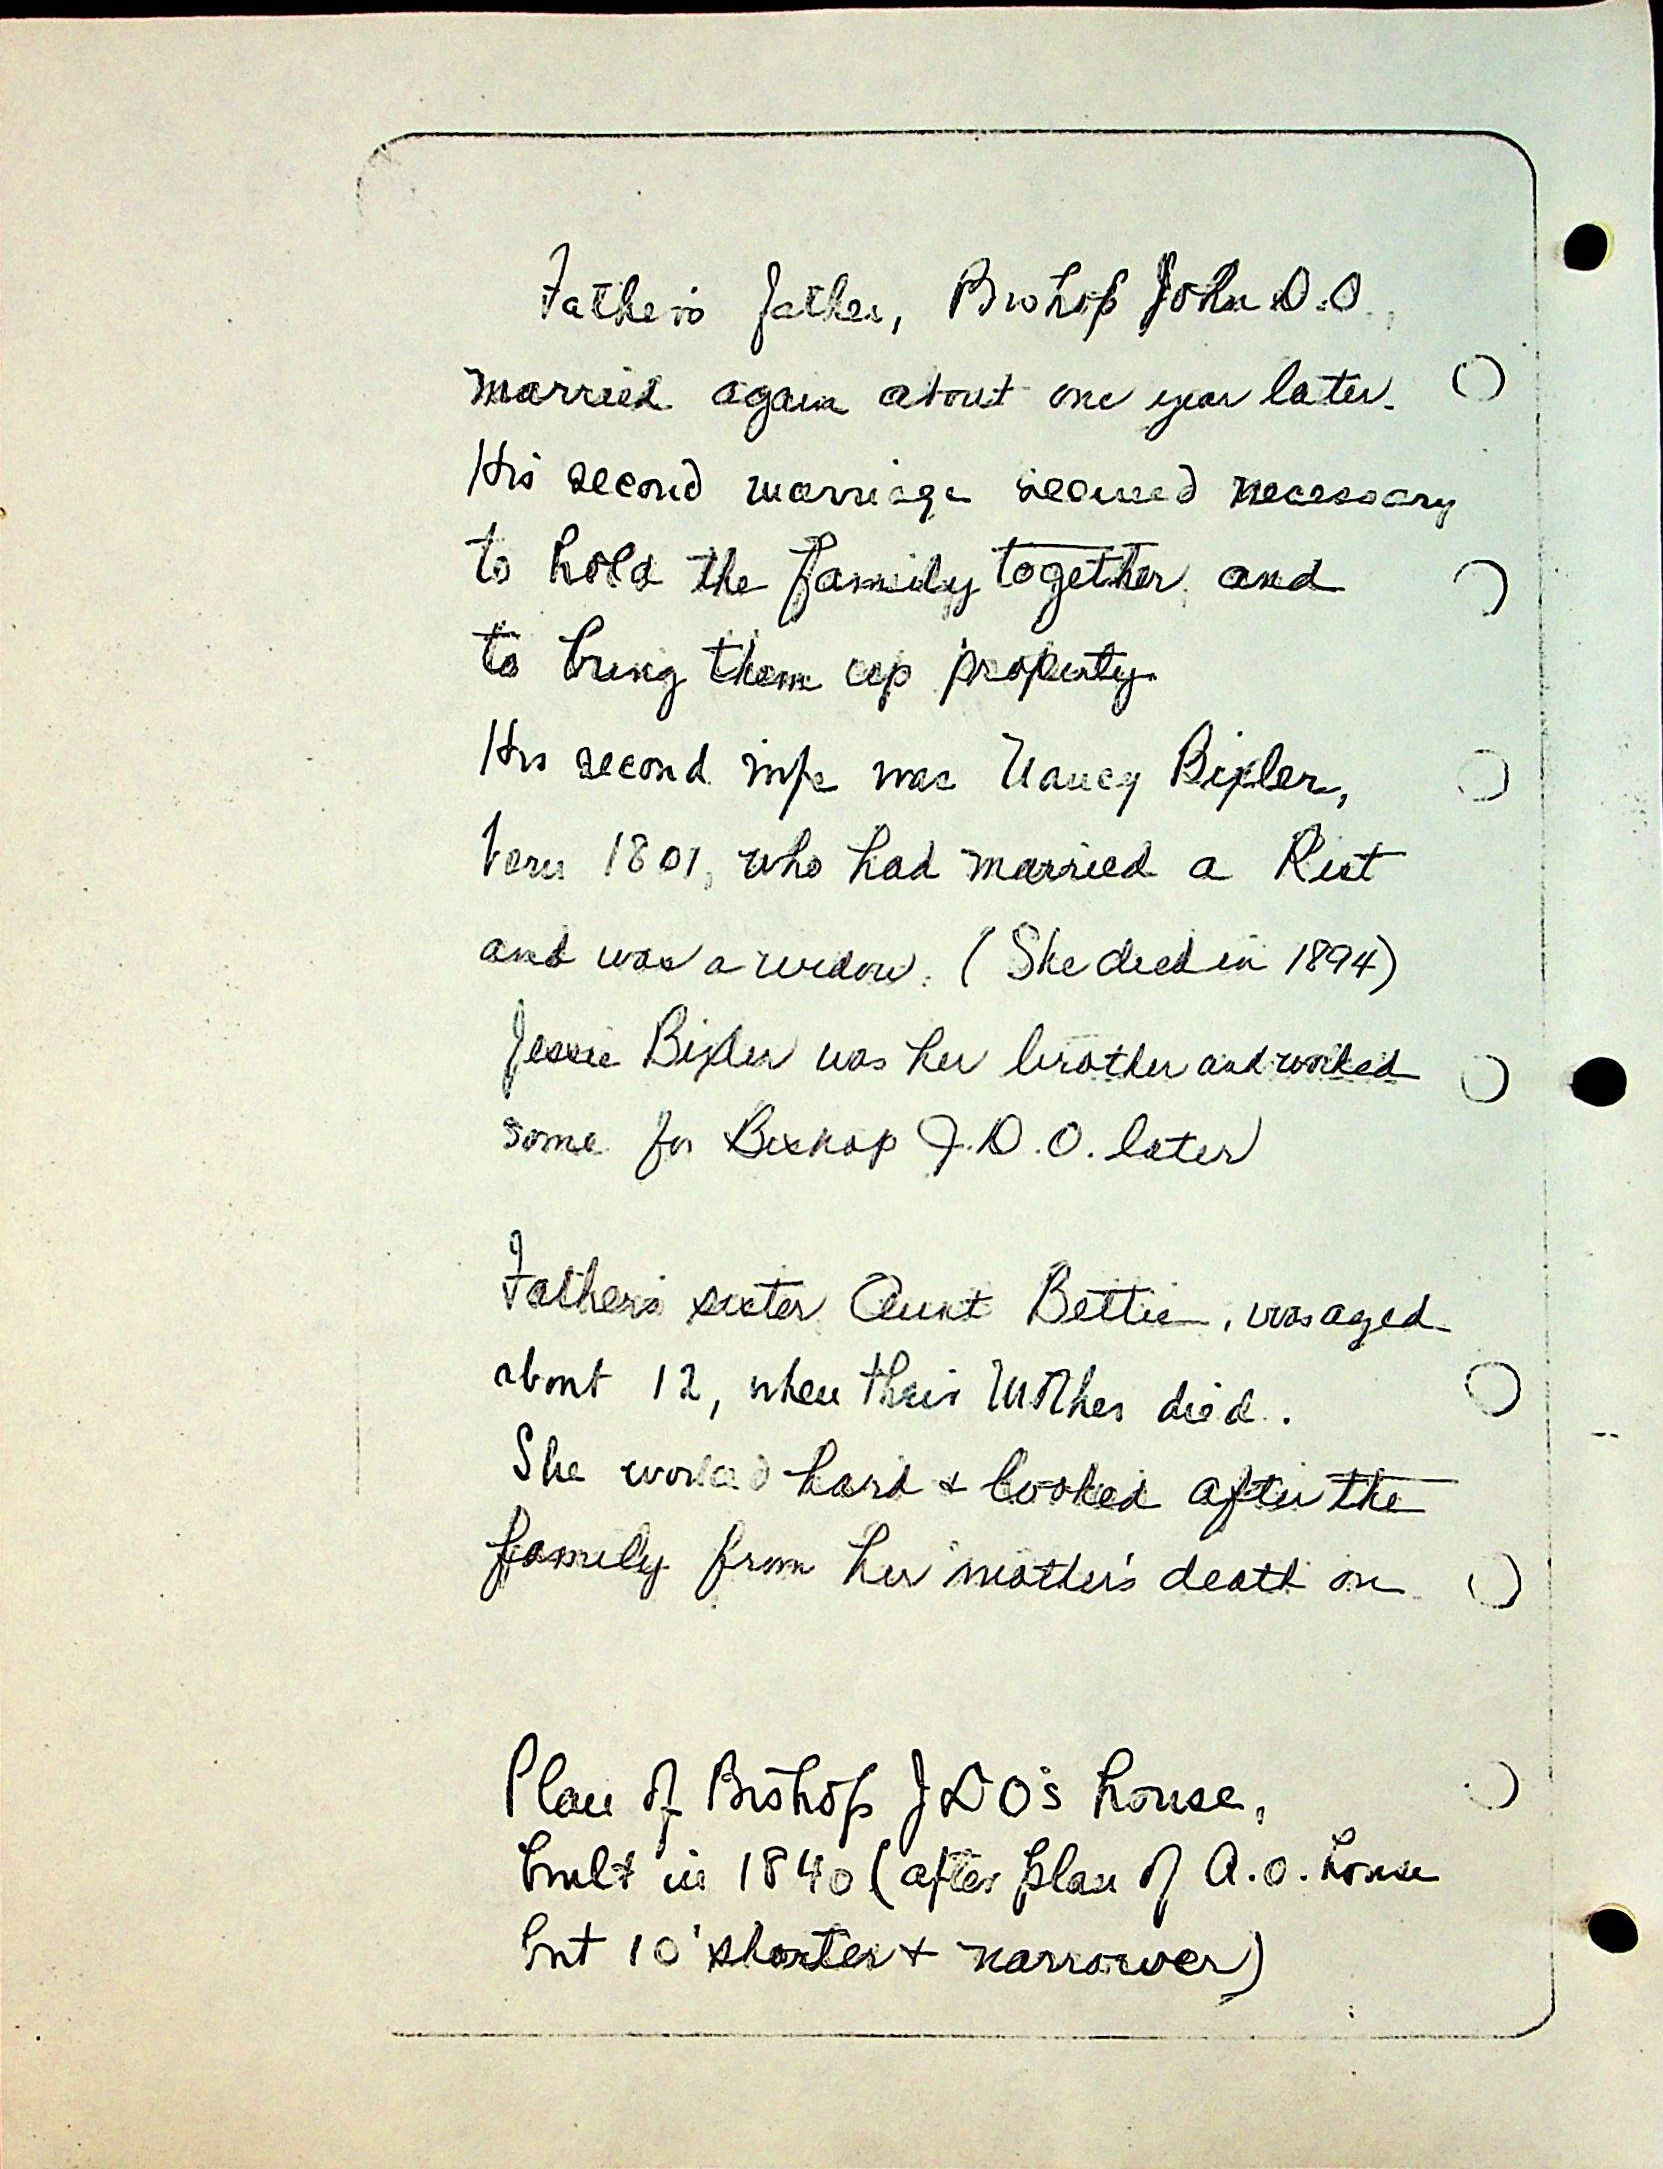 Father's father, Bishop John D.O.,
married again about one year later.
His second marriage seemed necessary
to hold the family together and
to bring them up properly.
His second wife was Nancy Bixler,
born 1801, who had married a Rist
and was a widow. (She died in 1894)
Jessie Bixler was her brother and worked
some for Bishop J.D.O. later
Father's sister Aunt Bettie, was aged
about 12, when their Mother died.
She worked hard & looked after the
family from her mother's death on
Plan of Bishop JDO's house,
built in 1840 (after plan of A.O. house
but 10' shorter & narrower)